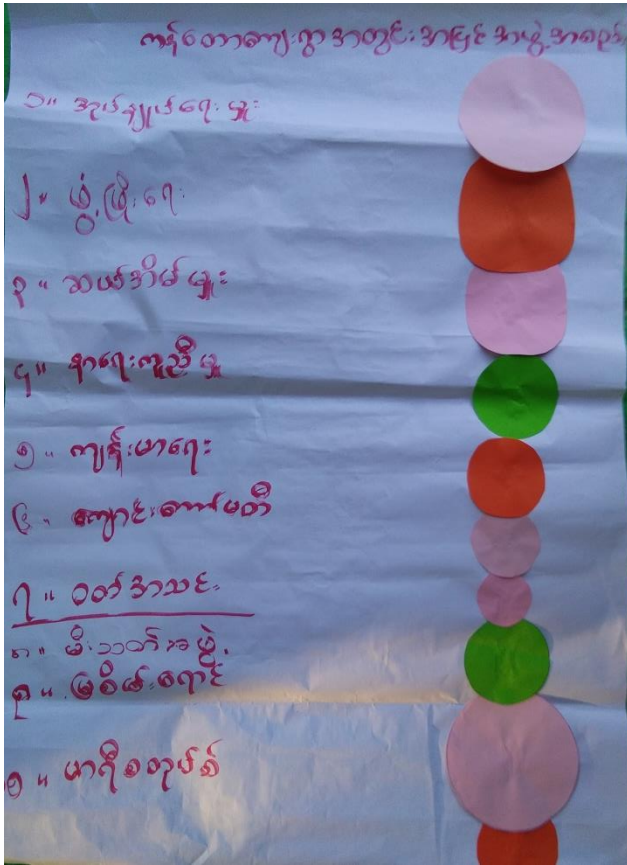 ကန်တောကျေးရွာအတွင်းအပြင်အဖွဲ့အစည်း
၁။ အုပ်ချုပ်ရေးမှူး
၂။ ဖွံ့ဖြိုးရေး
၃။ ဆယ်အိမ်မှူး
၄။ နာရေးကူညီမှု
၅။ ကျန်းမာရေး
၆။ ကျောင်းကော်မတီ
၇။ ဝတ်အသင်း
၈။ မီးသတ်အဖွဲ့
၉။ မြစိမ်းရောင်